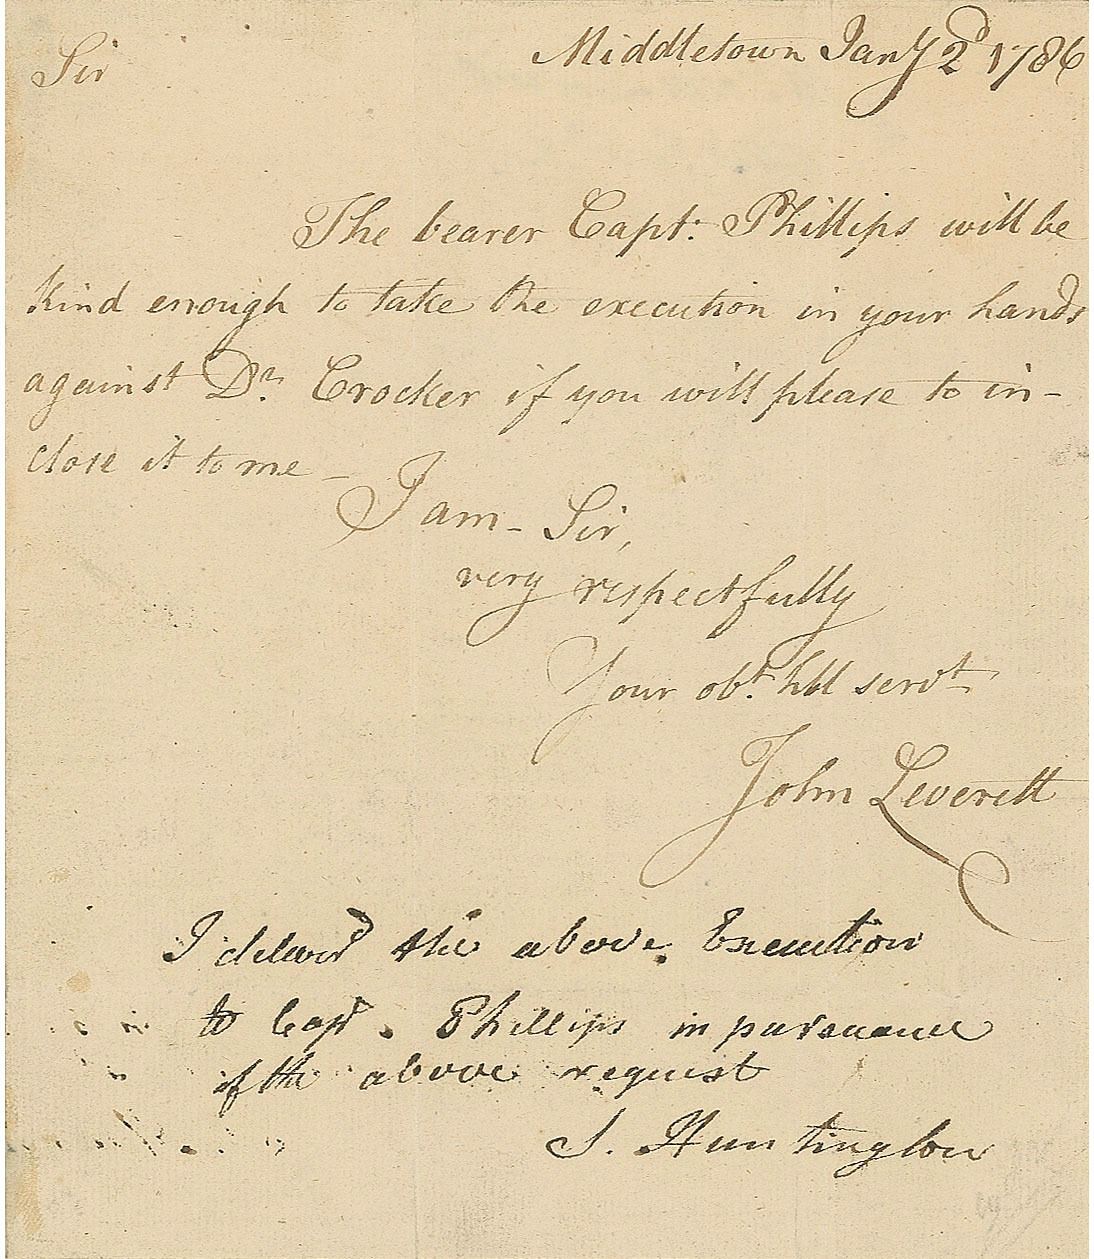 Middletown Jany 2d 1786
Sir
The bearer Capt. Phillips will be
kind enough to take the execution in your hands
against Dr. Crocker if you will please to in-
close it to me –
I am – Sir,
very respectfully
Your obt. hbl servt
John Leverett
I deliverd the above Execution
to Capt. Phillips in pursuance
of the above request
S. Huntington